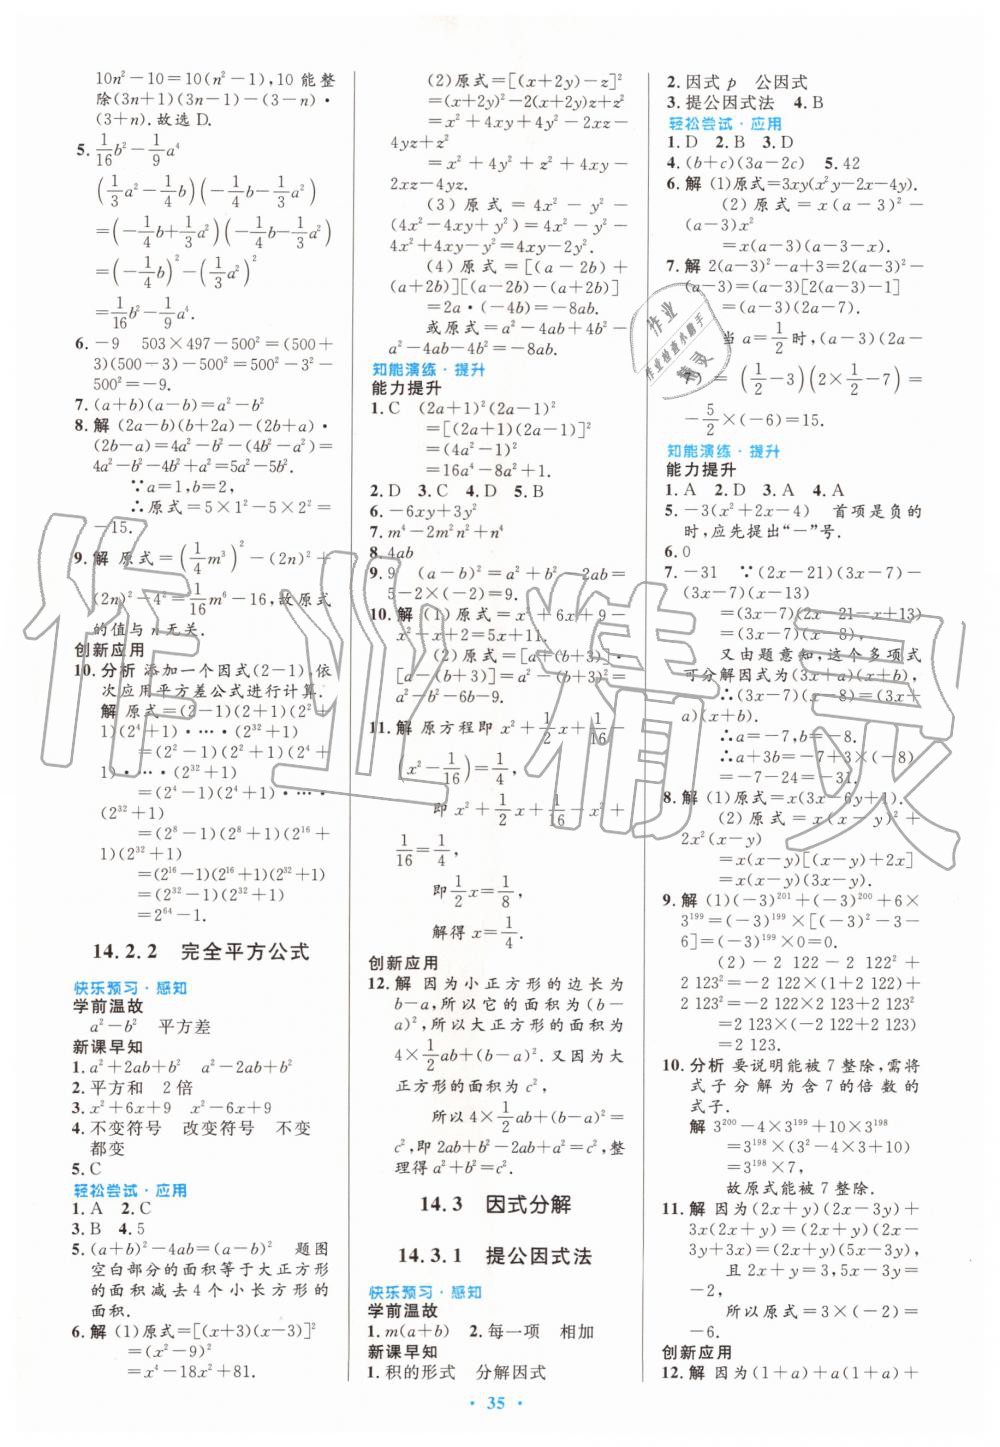 10n²-10=10(n²-1),10 能整
除(3n+1)(3n-1)-(3-n)·
(3+n).故选 D.
5. 1/16 b²-1/9 a⁴
(1/3 a²-1/4 b)(-1/4 b-1/3 a²)
=(-1/4 b+1/3 a²)(-1/4 b-1/3 a²)
=(-1/4 b)²-(1/3 a²)²
=1/16 b²-1/9 a⁴.
6. -9 503×497-500²=(500+
3)(500-3)-500²=500²-3²-
500²=-9.
7. (a+b)(a-b)=a²-b²
8. 解 (2a-b)(b+2a)-(2b+a)·
(2b-a)=4a²-b²-(4b²-a²)=
4a²-b²-4b²+a²=5a²-5b².
∵a=1,b=2,
∴原式=5×1²-5×2²=
-15.
9. 解 原式=(1/4 m³)²-(2n)²+
(2n)²-4²=1/16 m⁶-16,故原式
的值与 n 无关.
创新应用
10. 分析 添加一个因式(2-1),依
次应用平方差公式进行计算.
解 原式=(2-1)(2+1)(2²+
1)(2⁴+1)·…·(2³²+1)
=(2²-1)(2²+1)(2⁴+
1)·…·(2³²+1)
=(2⁴-1)(2⁴+1)·…·
(2³²+1)
=(2⁸-1)(2⁸+1)(2¹⁶+
1)(2³²+1)
=(2¹⁶-1)(2¹⁶+1)(2³²+1)
=(2³²-1)(2³²+1)
=2⁶⁴-1.
14.2.2 完全平方公式
快乐预习·感知
学前温故
a²-b² 平方差
新课早知
1. a²+2ab+b² a²-2ab+b²
2. 平方和 2 倍
3. x²+6x+9 x²-6x+9
4. 不变符号 改变符号 不变
都变
5. C
轻松尝试·应用
1. A 2. C
3. B 4. 5
5. (a+b)²-4ab=(a-b)² 题图
空白部分的面积等于大正方形
的面积减去4个小长方形的
面积.
6. 解 (1)原式=[(x+3)(x-3)]²
=(x²-9)²
=x⁴-18x²+81.
(2)原式=[(x+2y)-z]²
=(x+2y)²-2(x+2y)z+z²
=x²+4xy+4y²-2xz-4yz+z²
=x²+4y²+z²+4xy-
2xz-4yz.
(3)原式=4x²-y²-
(4x²-4xy+y²)=4x²-y²-
4x²+4xy-y²=4xy-2y².
(4)原式=[(a-2b)+
(a+2b)][(a-2b)-(a+2b)]
=2a·(-4b)=-8ab.
或原式=a²-4ab+4b²-
a²-4ab-4b²=-8ab.
知能演练·提升
能力提升
1. C (2a+1)²(2a-1)²
=[(2a+1)(2a-1)]²
=(4a²-1)²
=16a⁴-8a²+1.
2. D 3. C 4. D 5. B
6. -6xy+3y²
7. m⁴-2m²n²+n⁴
8. 4ab
9. 9 (a-b)²=a²+b²-2ab=
5-2×(-2)=9.
10. 解 (1)原式=x²+6x+9-
x²-x-2=5x+11.
(2)原式=[a+(b+3)]
·[a-(b+3)]=a²-(b+3)²=
a²-b²-6b-9.
11. 解 原方程即 x²+1/2 x+1/16-
(x²-1/16)=1/4,
即 x²+1/2 x+1/16-x²+
1/16=1/4,
即1/2 x=1/8,
解得 x=1/4.
创新应用
12. 解 因为小正方形的边长为
b-a,所以它的面积为(b-
a)²,所以大正方形的面积为
4×1/2 ab+(b-a)².因为大
正方形的面积为 c²,
所以 4×1/2 ab+(b-a)²=
c²,即 2ab+b²-2ab+a²=c²,整
理得 c²=a²+b².
14.3 因式分解
14.3.1 提公因式法
快乐预习·感知
学前温故
1. m(a+b) 2. 每一项 相加
新课早知
1. 积的形式 分解因式
2. 因式 p 公因式
3. 提公因式法 4. B
轻松尝试·应用
1. D 2. B 3. D
4. (b+c)(3a-2c) 5. 42
6. 解 (1)原式=3xy(x²y-2x-4y).
(2)原式=x(a-3)²-
(a-3)x²
=x(a-3)(a-3-x).
7. 解 2(a-3)²-a+3=2(a-3)²
-(a-3)=(a-3)[2(a-3)-1]
=(a-3)(2a-7).
当 a=1/2时,(a-3)(2a-7)
=(1/2-3)(2×1/2-7)=
-5/2×(-6)=15.
知能演练·提升
能力提升
1. A 2. C 3. A 4. A
5. -3(x²+2x-4) 首项是负的
时,应先提出“-”号.
6. 0
7. -31 ∵(2x-21)(3x-7)-
(3x-7)(x-13)
=(3x-7)(2x-21-x+13)
=(3x-7)(x-8),
又由题意知,这个多项式
可分解因式为(3x+a)(x+b),
∴(3x-7)(x-8)=(3x+
a)(x+b).
∴a=-7,b=-8.
∴a+3b=-7+3×(-8)
=-7-24=-31.
8. 解 (1)原式=x(3x-6y+1).
(2)原式=x(x-y)²+
2x²(x-y)
=x(x-y)[(x-y)+2x]
=x(x-y)(3x-y).
9. 解 (1)(-3)²⁰¹+(-3)²⁰⁰+6×
3¹⁹⁹=(-3)¹⁹⁹×[(-3)²-3-
6]=(-3)¹⁹⁹×0=0.
(2)-2 122×(-2 122+1)
=-2 122²-2 122+2 123²
=-2 122×(2 122+1)+2 123²
=-2 122×2 123+2 123²
=2 123×(-2 122+2 123)
=2 123.
10. 分析 要说明能被 7 整除,需将
式子分解为含 7 的倍数的
式子.
解 3²⁰⁰-4×3¹⁹⁹+10×3¹⁹⁸
=3¹⁹⁸×(3²-4×3+10)
=3¹⁹⁸×7,
故原式能被 7 整除.
11. 解 因为(2x+y)(2x-3y)+
3x(2x+y)=(2x+y)(2x-
3y+3x)=(2x+y)(5x-3y),
且 2x+y=3,5x-3y=
-2,
所以原式=3×(-2)=
-6.
创新应用
12. 解 因为(1+a)+a(1+a)+
· 35 ·
作业精灵
作业
作业检查小助手
精灵